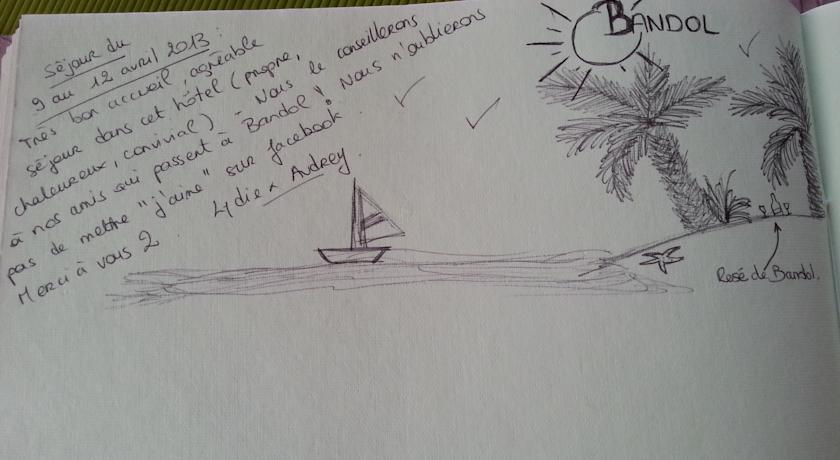 Séjour du
9 au 12 avril 2013 :
Très bon accueil, agréable
séjour dans cet hôtel (propre,
chaleureux, convivial) - Nous le conseillerons
à nos amis qui passent à Bandol ! Nous n'oublierons
pas de mettre "j'aime" sur facebook.
Merci à vous 2. Lydie & Audrey.
BANDOL
Rosé de Bandol.